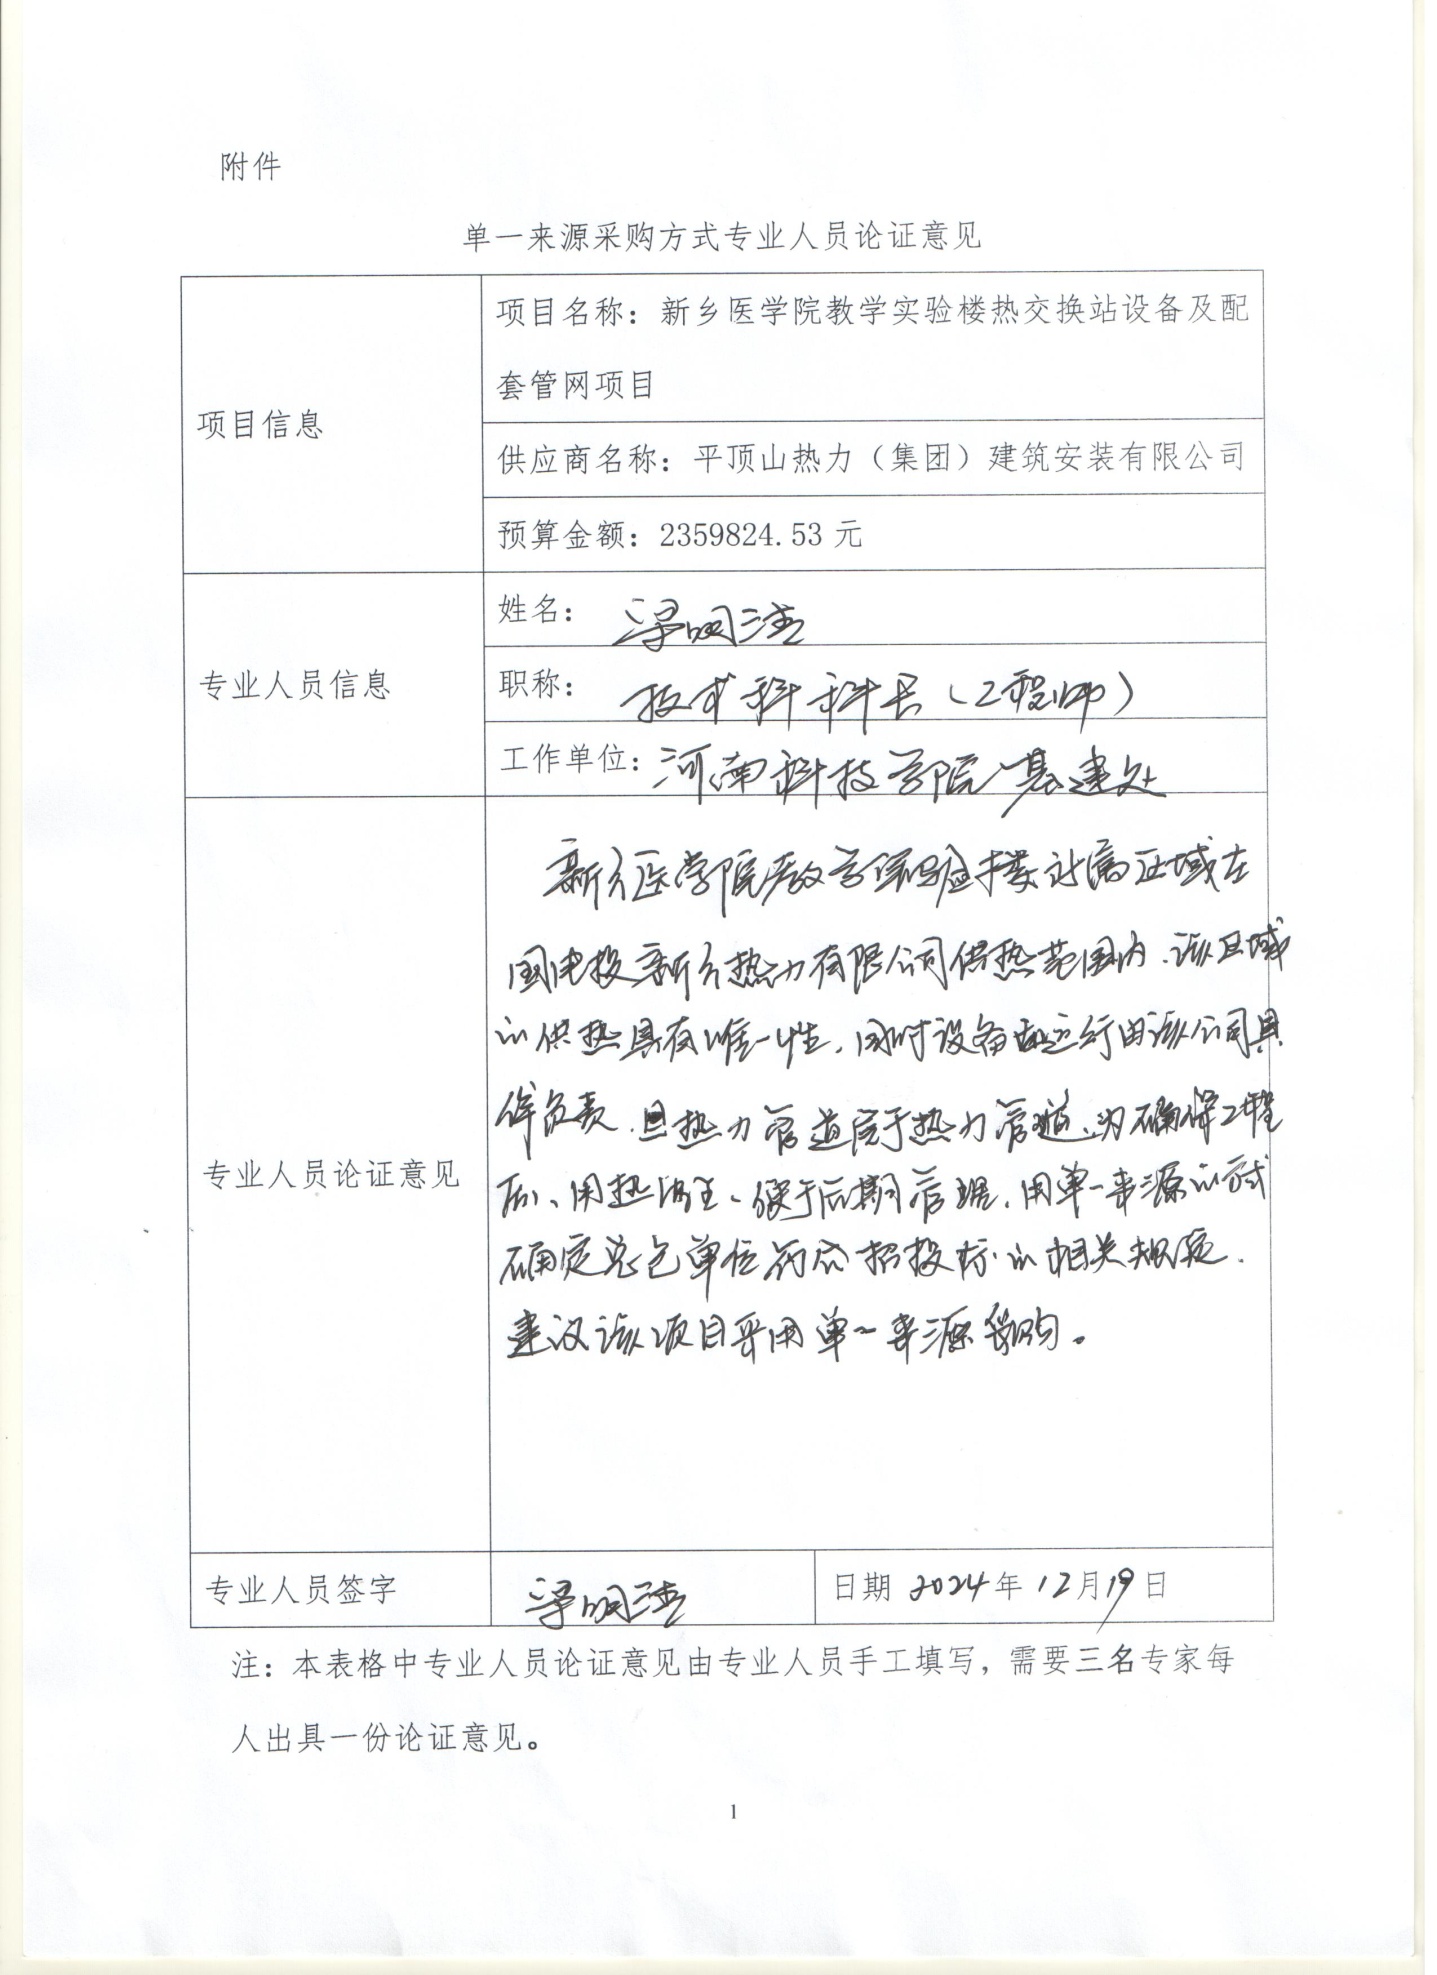 附件
单一来源采购方式专业人员论证意见
项目信息
项目名称：新乡医学院教学实验楼热交换站设备及配
套管网项目
供应商名称：平顶山热力（集团）建筑安装有限公司
预算金额：2359824.53 元
专业人员信息
姓名：梁明洁
职称：技术科科长（工程师）
工作单位：河南科技学院基建处
专业人员论证意见
新乡医学院教学实验楼所属区域在
国电投新乡热力有限公司供热范围内，该区域
的供热具有唯一性，同时设备运行由该公司具
体负责，且热力管道属于热力管道，为确保工程
用热 便于后期管理，用单一来源的方式
确定总包单位符合招投标的相关规定，
建议该项目采用单一来源采购。
专业人员签字
梁明洁
日期 2024年 12月19日
注：本表格中专业人员论证意见由专业人员手工填写，需要三名专家每
人出具一份论证意见。
1